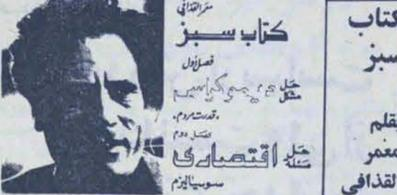 معمر القذافی
کتاب سبز
فصل اول
حل مشکل دیموکراسی
«قدرت مردم»
فصل دوم
حل مسئله اقتصادی
سوسیالیزم
کتاب
سبز
بقلم
معمر
القذافی